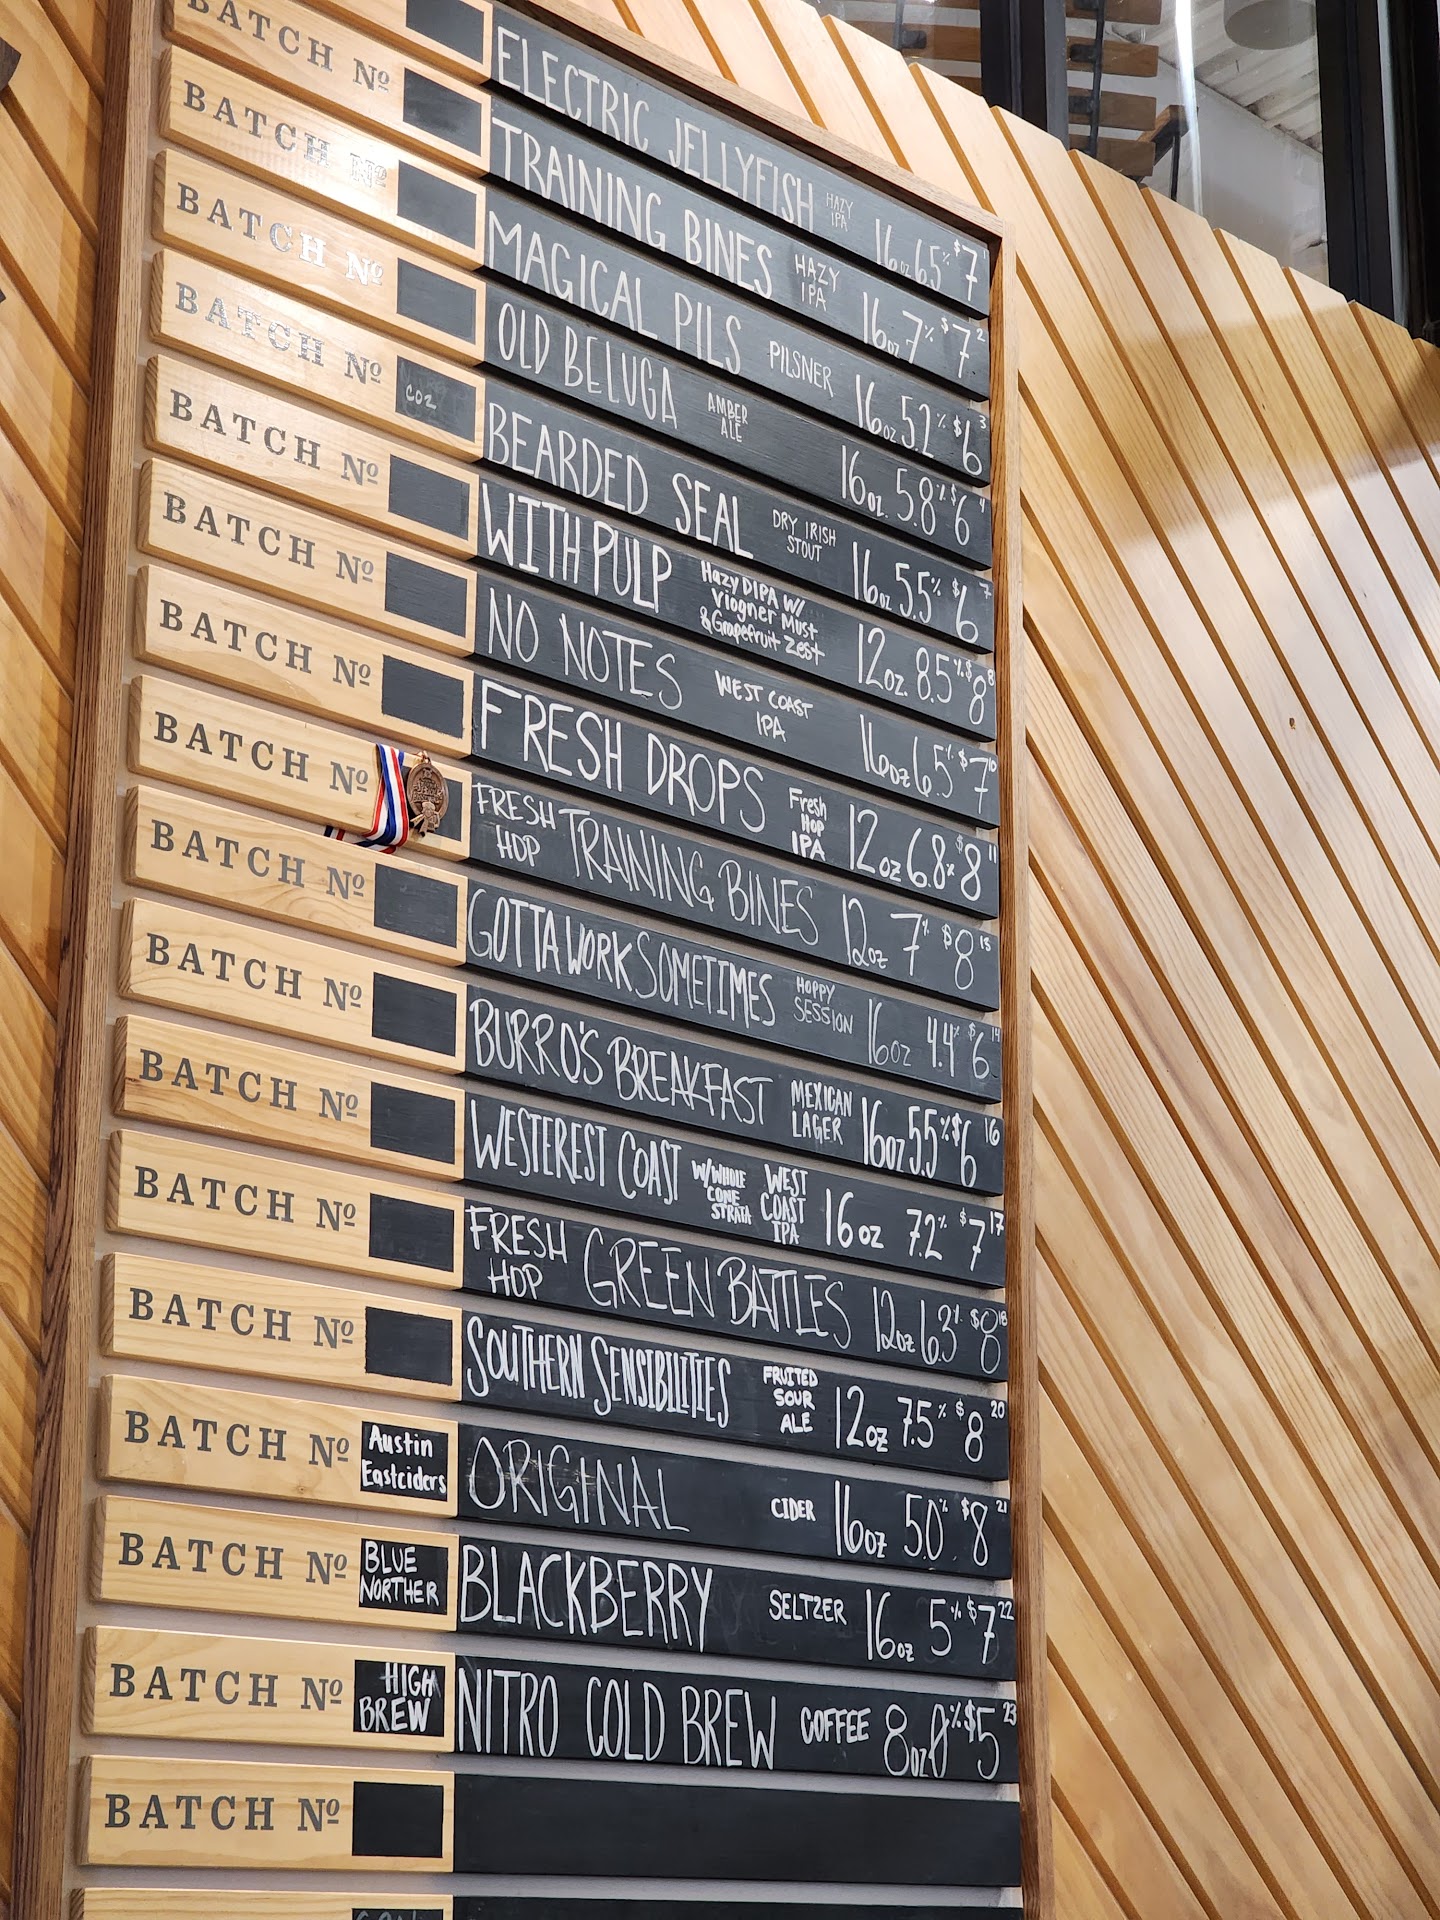 BATCH Nº ELECTRIC JELLYFISH HAZY IPA 16oz 6.5% $7 1
BATCH Nº TRAINING BINES HAZY IPA 16oz 7% $7 2
BATCH Nº MAGICAL PILS PILSNER 16oz 5.2% $6 3
BATCH Nº CO2 OLD BELUGA AMBER ALE 16oz. 5.8% $6 4
BATCH Nº BEARDED SEAL DRY IRISH STOUT 16oz 5.5% $6 7
BATCH Nº WITH PULP Hazy DIPA W/ Viogner Must & Grapefruit Zest 12oz. 8.5% $8 8
BATCH Nº NO NOTES WEST COAST IPA 16oz 6.5% $7 10
BATCH Nº FRESH DROPS Fresh Hop IPA 12oz 6.8% $8 11
BATCH Nº FRESH HOP TRAINING BINES 12oz 7% $8 13
BATCH Nº GOTTA WORK SOMETIMES HOPPY SESSION 16oz 4.4% $6 14
BATCH Nº BURRO'S BREAKFAST MEXICAN LAGER 16oz 5.5% $6 16
BATCH Nº WESTEREST COAST W/WHOLE CONE STRATA WEST COAST IPA 16oz 7.2% $7 17
BATCH Nº FRESH HOP GREEN BATTLES 12oz 6.3% $8 18
BATCH Nº SOUTHERN SENSIBILITIES FRUITED SOUR ALE 12oz 7.5% $8 20
BATCH Nº Austin Eastciders ORIGINAL CIDER 16oz 5.0% $8 21
BATCH Nº BLUE NORTHER BLACKBERRY SELTZER 16oz 5% $7 22
BATCH Nº HIGH BREW NITRO COLD BREW COFFEE 8oz 0% $5 23
BATCH Nº